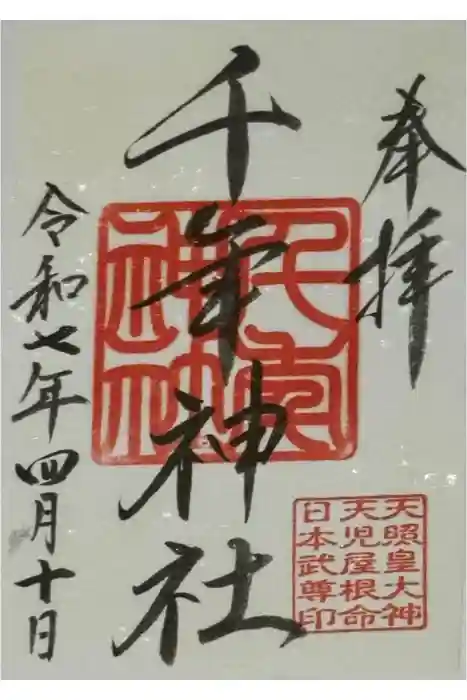 奉拝
千年神社
千年神社
天照皇大神
天児屋根命
日本武尊印
令和七年四月十日